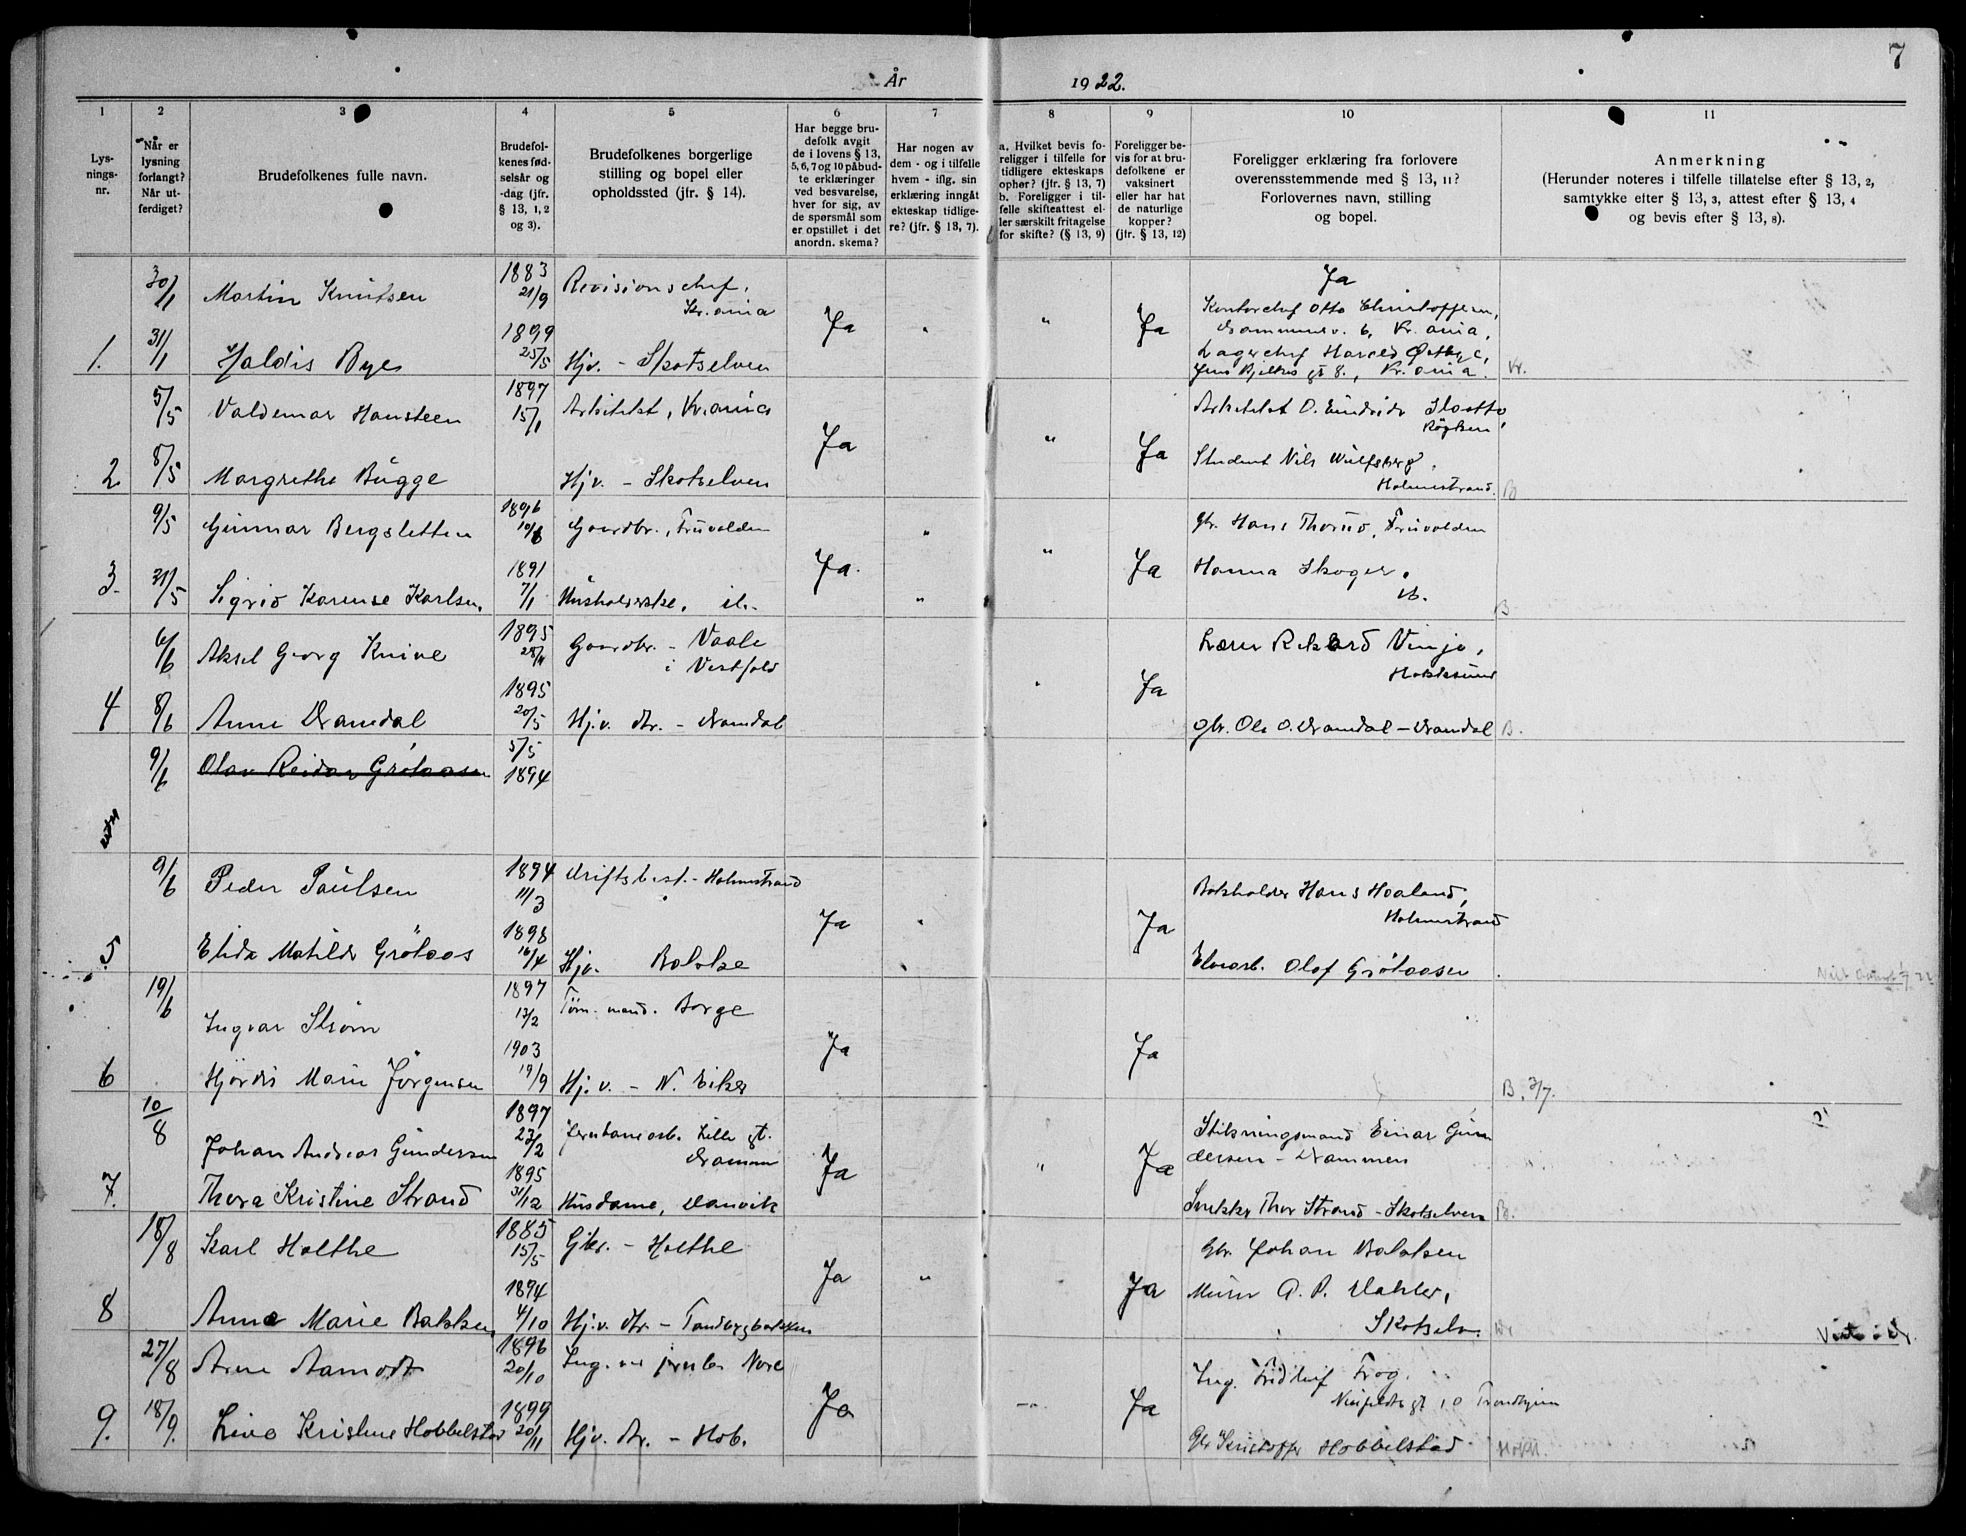 7
År 1922.
1 2 3 4 5 6 7 8 9 10 11
Lys-
nings-
nr.
Når er
lysning
forlangt?
Når ut-
ferdiget?
Brudefolkenes fulle navn.
Brudefol-
kenes fød-
selsår og
-dag (jfr.
§ 13, 1, 2
og 3).
Brudefolkenes borgerlige
stilling og bopel eller
opholdssted (jfr. § 14).
Har begge bru-
defolk avgit
de i lovens § 13,
5, 6, 7 og 10 påbud-
te erklæringer
ved besvarelse,
hver for sig, av
de spørsmål som
er opstillet i det
anordn. skema?
Har nogen av
dem - og i tilfelle
hvem - iflg. sin
erklæring inngåt
ekteskap tidlige-
re? (jfr. § 13, 7).
a. Hvilket bevis fo-
religger i tilfelle for
tidligere ekteskaps
ophør? (jfr. § 13, 7)
b. Foreligger i til-
felle skifteattest el-
ler særskilt fritagelse
for skifte? (§ 13, 9)
Foreligger be-
vis for at bru-
defolkene er
vaksinert
eller har hat
de naturlige
kopper?
(jfr. § 13, 12)
Foreligger erklæring fra forlovere
overensstemmende med § 13, 11?
Forlovernes navn, stilling
og bopel.
Anmerkning
(Herunder noteres i tilfelle tillatelse efter § 13, 2,
samtykke efter § 13, 3, attest efter § 13, 4
og bevis efter § 13, 8).
30/1 Martin Knutsen 1883 21/9 Revisionschef, Kr.ania
Ja " Ja
Ja
Kontorchef Otto
6, Kr.ania,
1. 31/1 Haldis Bye 1899 25/5 Hjv. - Skotselven
Lagerchef Harald
8., Kr.ania. Kr.
5/5 Valdemar Hansteen 1897 15/1 Arkitekt, Kr.ania
Ja " Ja
Arkitekt O. Eindride Slaatto,
2 8/5 Margrethe Bugge Hjv. - Skotselven
Student Nils Wulfsberg,
Holmestrand. B
9/5 Gunnar Bergsletten 1896 10/8 Gaardbr., Fruvolden "
Ja. " Ja
gbr. Hans Thorud, Fruvolden
3. 31/5 Sigrid Karense Karlsen, 1891 7/1 Husholderske, "
Hanna Skoger,
B
6/6 Aksel Georg Knive 1895 28/11 Gaardbr. - Vaale
i Vestfold
Ja
Lærer Rikard Vinje,
Hokksund
4 8/6 Anne Dramdal 1895 20/5 Hj.v. dtr. - Dramdal
gbr. Ole O. Dramdal - Dramdal B.
9/6 Olav Reidar Grøtaasen 5/5
1894
9/6 Peder Paulsen 1894 11/3 Driftsbest. - Holmestrand
Ja Ja
Bokholder Hans Haaland,
Holmestrand
5 Elida Matilde Grøtaas 1898 16/4 Hjv. Bakke
Elvearb. Olaf Grøtaasen
19/6 Ingvar Strøm 1897 13/2 Tøm.mand. Borge
Ja Ja
6 Hjørdis Marie Jørgensen 1903 19/9 Hj.v. - N. Eiker
B. 3/7.
10/8 Johan Andreas Gundersen 1897 23/2 Jernbanearb. Lille gt.
Drammen
Ja " Ja
Stikningsmand Einar Gun
dersen - Drammen
7. Thora Kristine Strand 1895 31/12 Husdame, Danvik
Snekker Thor Strand - Skotselven B.
18/8 Karl Holthe 1885 15/5 Gbr. - Holthe
Ja " Ja
Gbr. Johan Bakken
8 Anna Marie Bakken, 1894 4/10 Hj.v. dtr. - Tandbergbakken
Murer A. P. Dahler,
Skotselv.
27/8 Arne Aamodt 1896 20/10 Ing. ved jernbn Nore
Ja - Ja
Ing. Fridthjof Frog.
10 Trondhjem
9. 18/9. Live Kristine Hobbelstad 1899 20/11 Hjv. dtr. - Hob.
Gbr Kristoffer Hobbelstad Hokk.